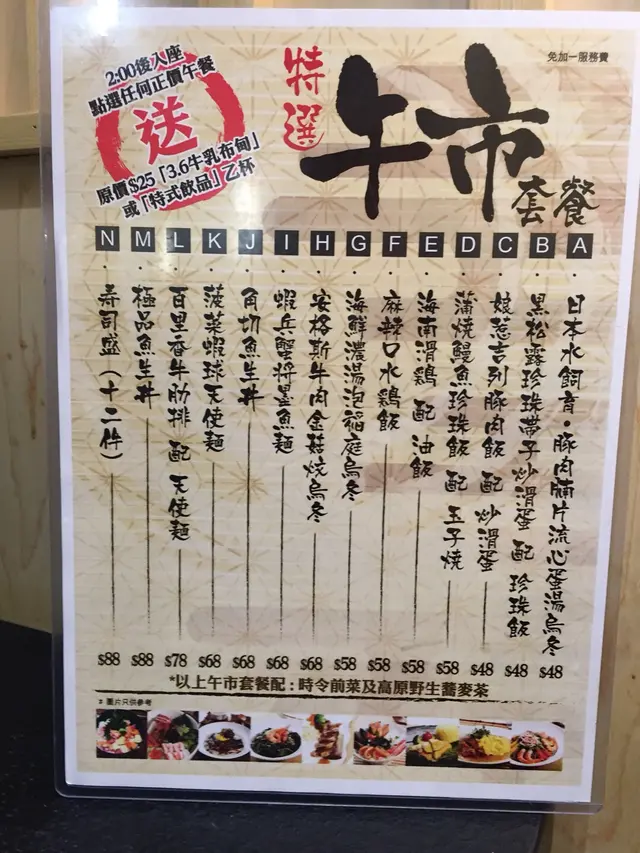 免加一服務費
特選
午市
套餐
2:00後入座
點選任何正價午餐
送
原價$25「3.6牛乳布甸」
或「特式飲品」乙杯
A · 日本水飼育·豚肉腩片流心蛋湯烏冬 $48
B · 黑松露珍珠帶子炒滑蛋 配 珍珠飯 $48
C · 娘惹吉列豚肉飯 配 炒滑蛋 $48
D · 蒲燒鰻魚珍珠飯 配 玉子燒 $58
E · 海南滑鷄 配 油飯 $58
F · 麻辣口水鷄飯 $58
G · 海鮮濃湯泡稲庭烏冬 $58
H · 安格斯牛肉金菇炆烏冬 $68
I · 蝦兵蟹將墨魚麵 $68
J · 角切魚生丼 $68
K · 菠菜蝦球天使麵 $68
L · 百里香牛肋排 配 天使麵 $78
M · 極品魚生丼 $88
N · 寿司盛(十二件) $88
*以上午市套餐配：時令前菜及高原野生蕎麥茶
圖片只供參考